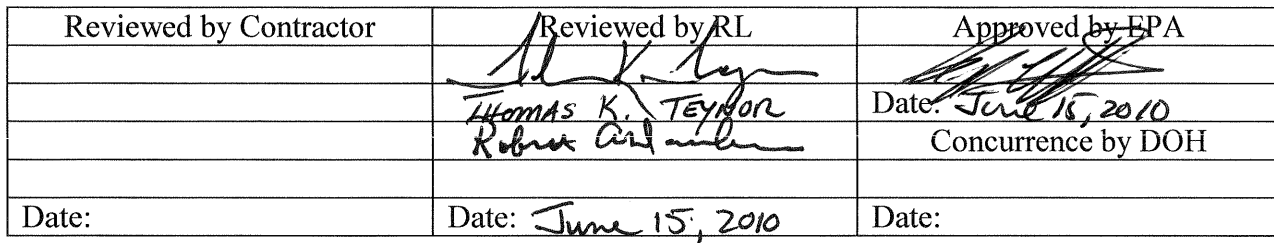 Reviewed by Contractor
Reviewed by RL
Approved by EPA
THOMAS K. TEYNOR
Date: June 15, 2010
Robert
Concurrence by DOH
Date:
Date: June 15, 2010
Date: